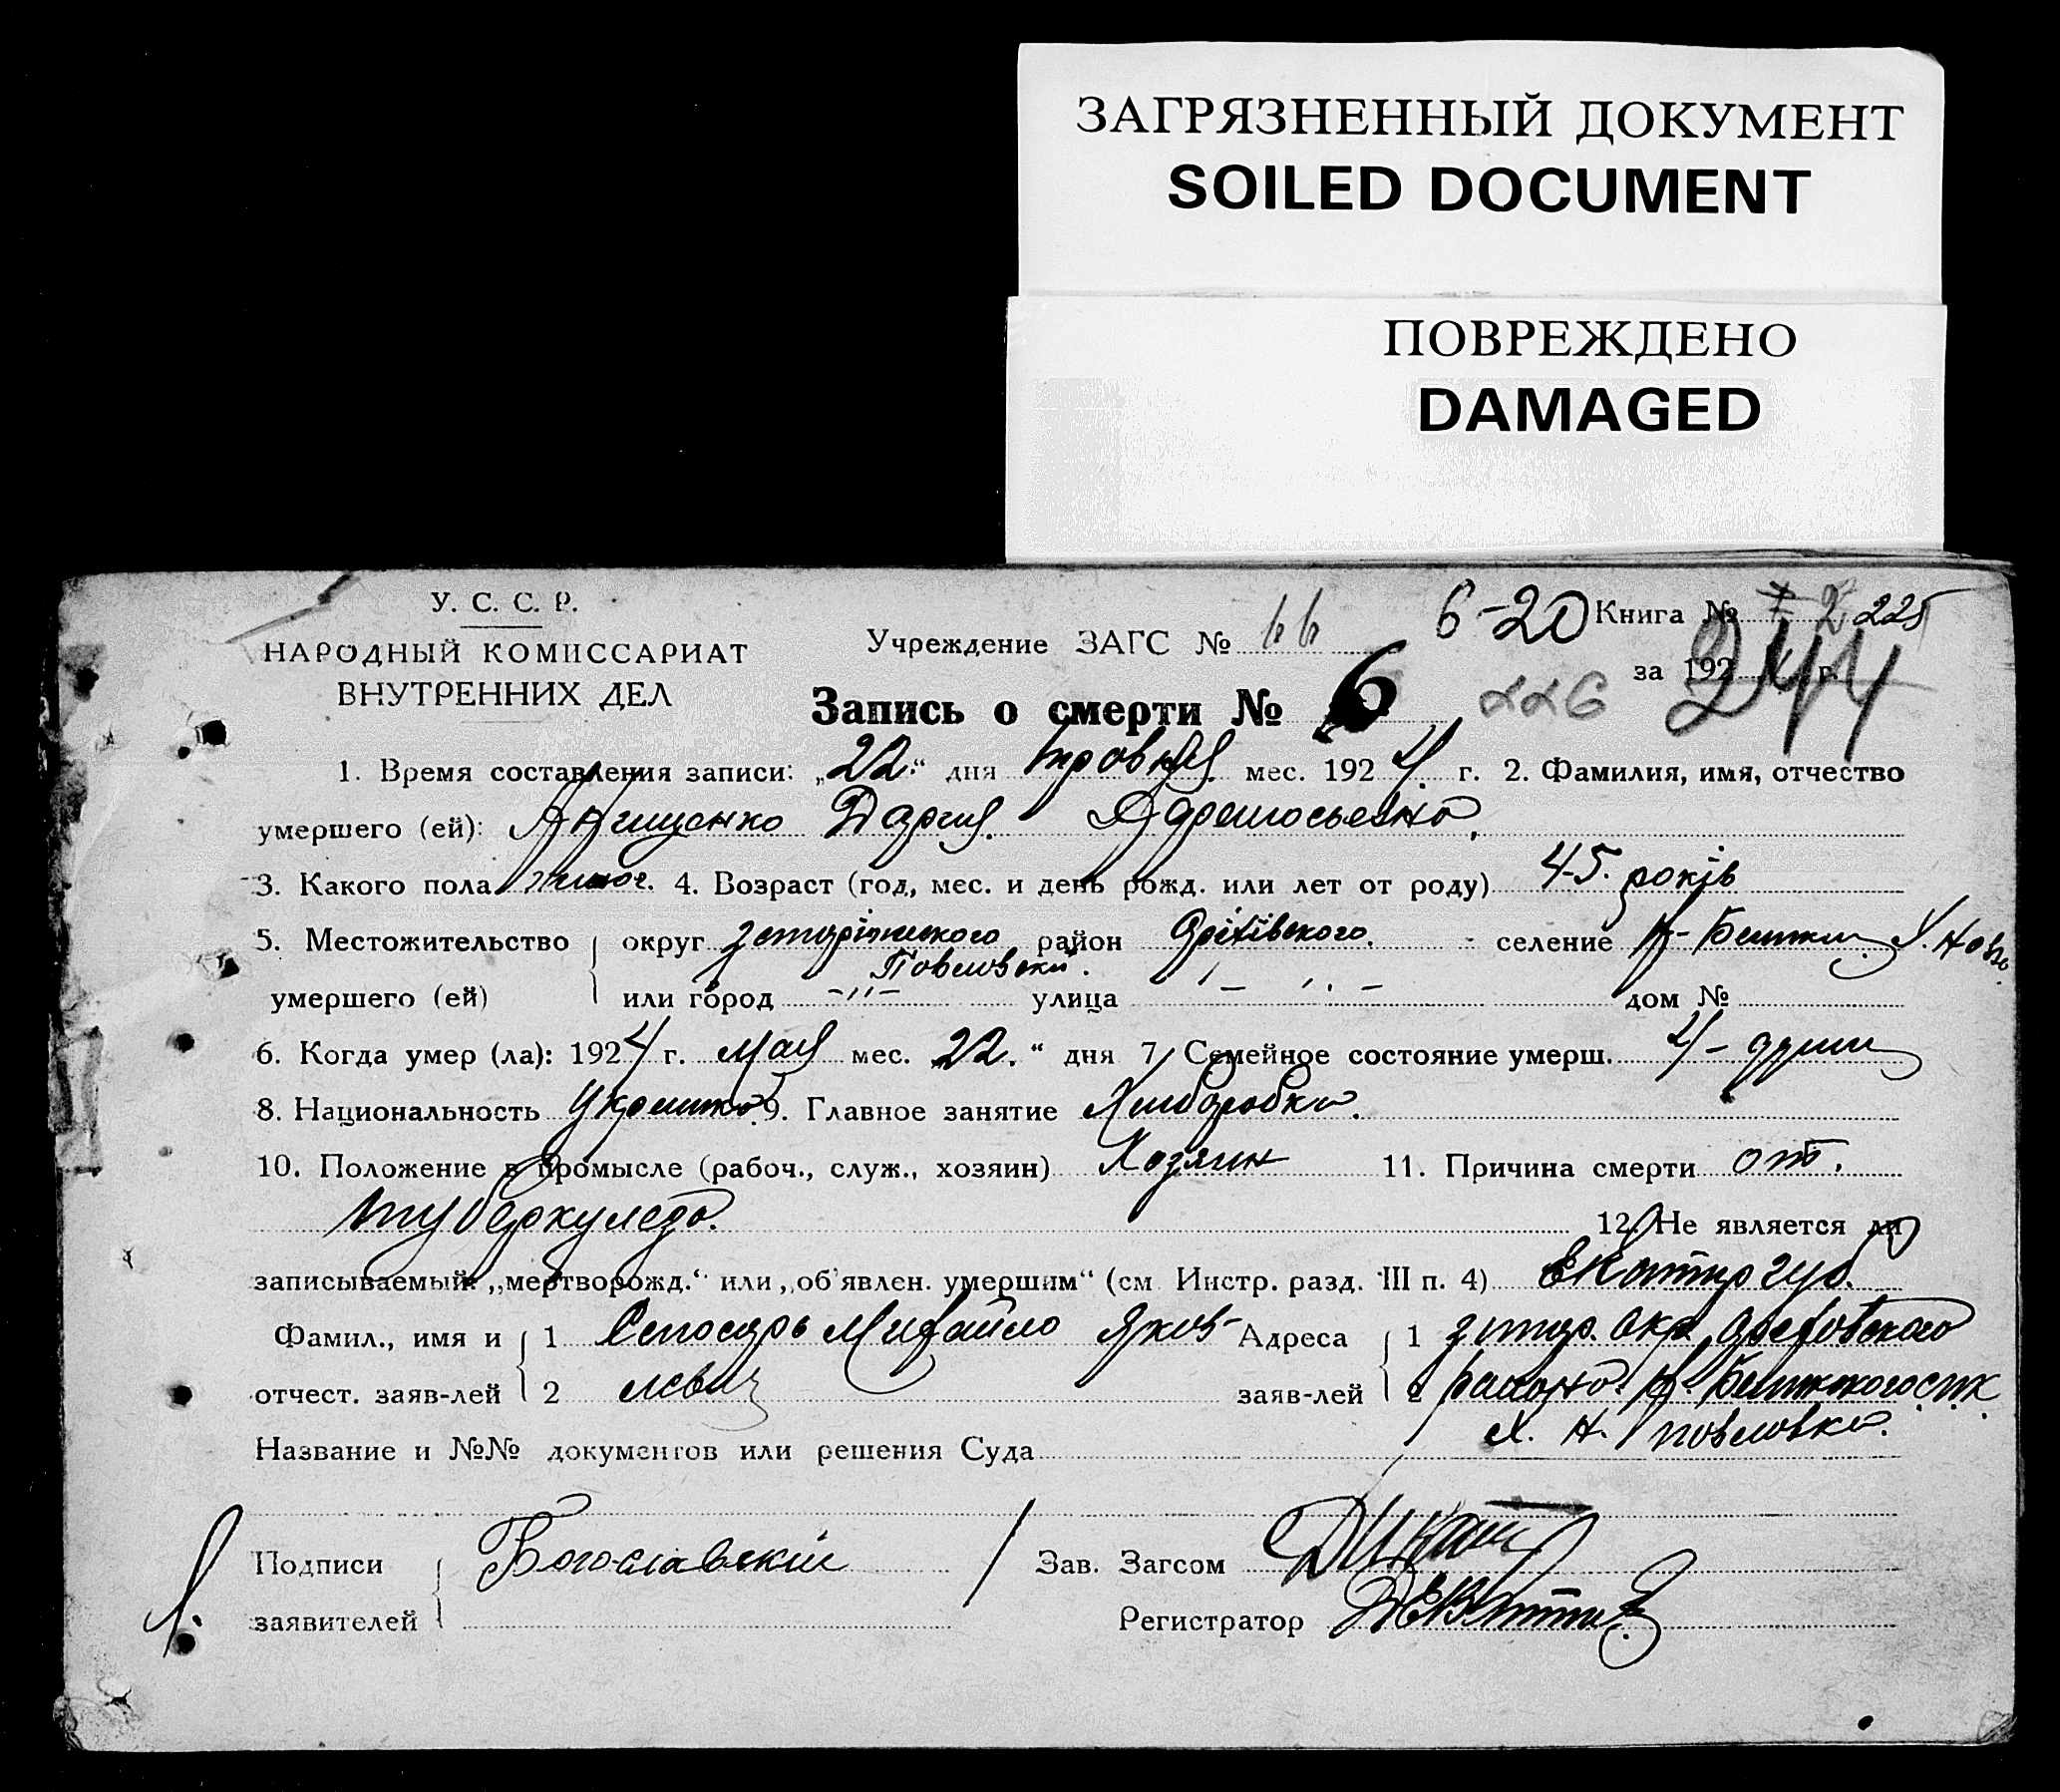 ЗАГРЯЗНЕННЫЙ ДОКУМЕНТ
SOILED DOCUMENT
ПОВРЕЖДЕНО
DAMAGED
У. С. С. Р.
НАРОДНЫЙ КОМИССАРИАТ
ВНУТРЕННИХ ДЕЛ
6-20 Книга № 2 225
Учреждение ЗАГС № 66
за 1924 г.
244
Запись о смерти № 6 226
1. Время составления записи: „22“ дня травня мес. 1924 г. 2. Фамилия, имя, отчество
умершего (ей): Дария
3. Какого пола жиноч. 4. Возраст (год, мес. и день рожд. или лет от роду) 45. років
5. Местожительство округ район Оріхівского селение Х. Ново
Повловский.
умершего (ей) или город -„- улица -„- дом №
6. Когда умер (ла): 1924 г. мая мес. 22. “ дня 7. Семейное состояние умерш. 4 - души
8. Национальность Украинка 9. Главное занятие Хлиборобка.
10. Положение в промысле (рабоч., служ., хозяин) Хозяин 11. Причина смерти от.
туберкулеза. 12. Не является ли
записываемый „мертворожд.“ или „об'явлен. умершим“ (см. Инстр. разд. III п. 4) Екатер губ.
Фамил., имя и 1 Михайло Яков- Адреса 1 окр. Ореховского
отчест. заяв-лей 2 левич заяв-лей 2 района
Х. Н. Повловка.
Название и №№ документов или решения Суда
Подписи Богославский Зав. Загсом
заявителей Регистратор